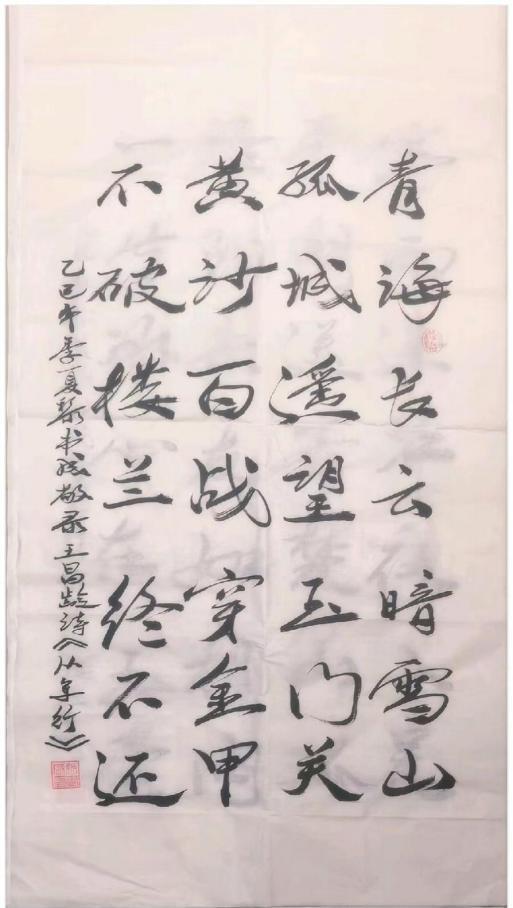 青海长云暗雪山
孤城遥望玉门关
黄沙百战穿金甲
不破楼兰终不还
乙巳年季夏黎书成敬录王昌龄诗《从军行》